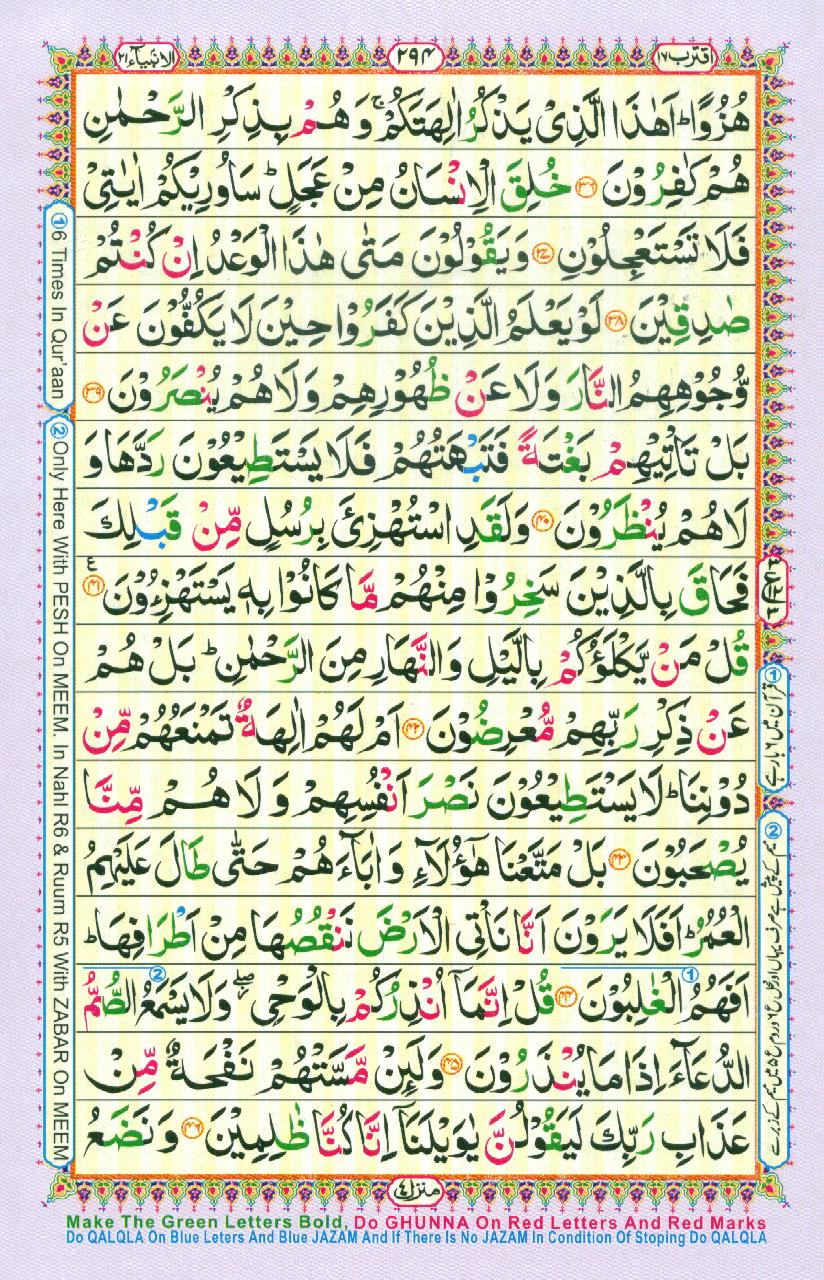 اقترب ١٧
٢٩٤
الانبیآء ٢١
هُزُوًا ؕ اَهٰذَا الَّذِیْ یَذْكُرُ اٰلِهَتَكُمْ ۚ وَ هُمْ بِذِكْرِ الرَّحْمٰنِ
هُمْ كٰفِرُوْنَ ۝٣٦ خُلِقَ الْاِنْسَانُ مِنْ عَجَلٍ ؕ سَاُورِیْكُمْ اٰیٰتِیْ
فَلَا تَسْتَعْجِلُوْنِ ۝٣٧ وَ یَقُوْلُوْنَ مَتٰی هٰذَا الْوَعْدُ اِنْ كُنْتُمْ
صٰدِقِیْنَ ۝٣٨ لَوْ یَعْلَمُ الَّذِیْنَ كَفَرُوْا حِیْنَ لَا یَكُفُّوْنَ عَنْ
وُّجُوْهِهِمُ النَّارَ وَ لَا عَنْ ظُهُوْرِهِمْ وَ لَا هُمْ یُنْصَرُوْنَ ۝٣٩
بَلْ تَاْتِیْهِمْ بَغْتَةً فَتَبْهَتُهُمْ فَلَا یَسْتَطِیْعُوْنَ رَدَّهَا وَ
لَا هُمْ یُنْظَرُوْنَ ۝٤٠ وَ لَقَدِ اسْتُهْزِئَ بِرُسُلٍ مِّنْ قَبْلِكَ
فَحَاقَ بِالَّذِیْنَ سَخِرُوْا مِنْهُمْ مَّا كَانُوْا بِهٖ یَسْتَهْزِءُوْنَ ۝٤١ ع
قُلْ مَنْ یَّكْلَؤُكُمْ بِالَّیْلِ وَ النَّهَارِ مِنَ الرَّحْمٰنِ ؕ بَلْ هُمْ
عَنْ ذِكْرِ رَبِّهِمْ مُّعْرِضُوْنَ ۝٤٢ اَمْ لَهُمْ اٰلِهَةٌ تَمْنَعُهُمْ مِّنْ
دُوْنِنَا ؕ لَا یَسْتَطِیْعُوْنَ نَصْرَ اَنْفُسِهِمْ وَ لَا هُمْ مِّنَّا
یُصْحَبُوْنَ ۝٤٣ بَلْ مَتَّعْنَا هٰۤؤُلَآءِ وَ اٰبَآءَهُمْ حَتّٰی طَالَ عَلَیْهِمُ
الْعُمُرُ ؕ اَفَلَا یَرَوْنَ اَنَّا نَاْتِی الْاَرْضَ نَنْقُصُهَا مِنْ اَطْرَافِهَا ؕ
اَفَهُمُ الْغٰلِبُوْنَ ۝٤٤ قُلْ اِنَّمَاۤ اُنْذِرُكُمْ بِالْوَحْیِ ۖؗ وَ لَا یَسْمَعُ الصُّمُّ
① ②
الدُّعَآءَ اِذَا مَا یُنْذَرُوْنَ ۝٤٥ وَ لَئِنْ مَّسَّتْهُمْ نَفْحَةٌ مِّنْ
عَذَابِ رَبِّكَ لَیَقُوْلُنَّ یٰوَیْلَنَاۤ اِنَّا كُنَّا ظٰلِمِیْنَ ۝٤٦ وَ نَضَعُ
① قرآن میں ٦ بار ہے
① 6 Times In Qur'aan
② Only Here With PESH On MEEM. In Nahl R6 & Ruum R5 With ZABAR On MEEM
منزل ٤
Make The Green Letters Bold, Do GHUNNA On Red Letters And Red Marks
Do QALQLA On Blue Leters And Blue JAZAM And If There Is No JAZAM In Condition Of Stoping Do QALQLA